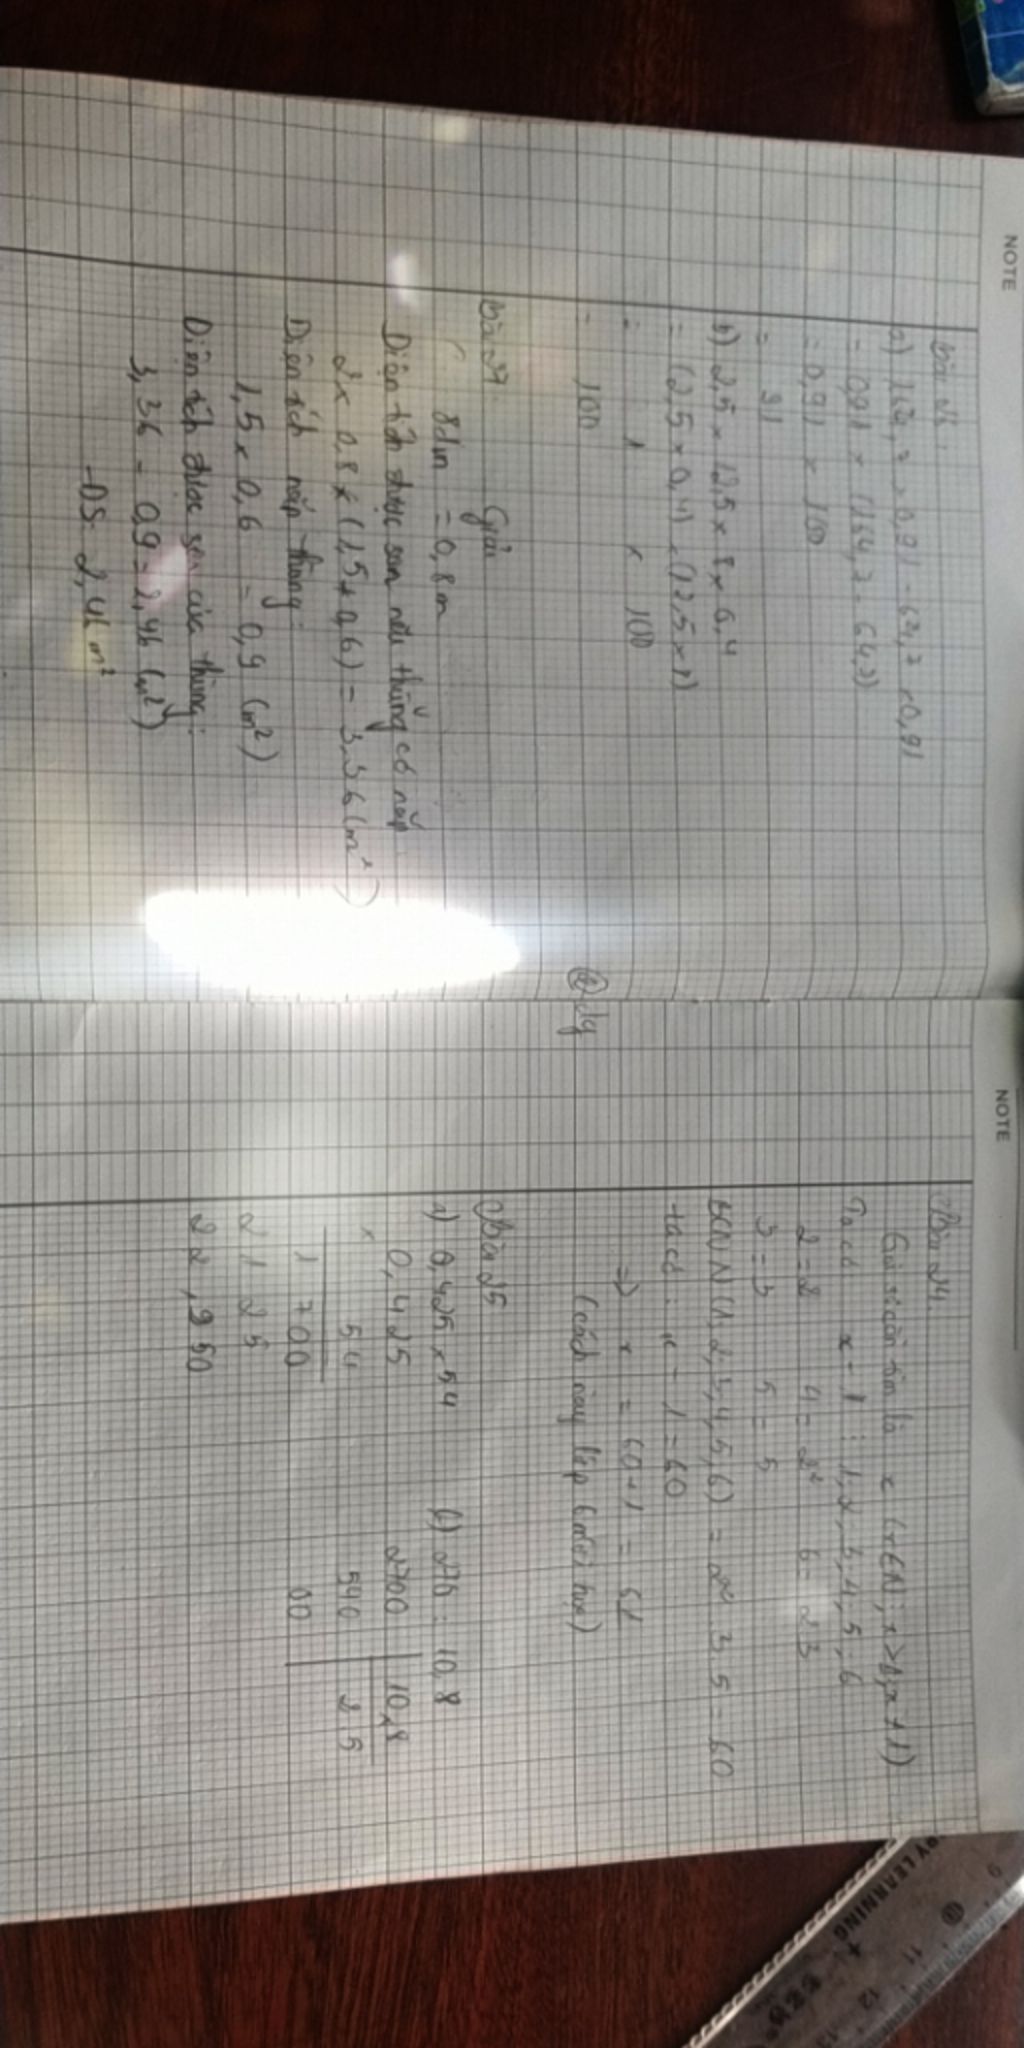 NOTE
a) 164,2 × 0,91 - 64,2 × 0,91
= 0,91 × (164,2 - 64,2)
= 0,91 × 100
= 91
b) 2,5 × 12,5 × 8 × 0,4
= (2,5 × 0,4) × (12,5 × 8)
= 1 × 100
= 100
Bài 27
Giải
8dm = 0,8m
Diện tích được sơn nếu thùng có nắp
2 × 0,8 × (1,5 + 0,6) = 3,36 (m²)
Diện tích nắp thùng:
1,5 × 0,6 = 0,9 (m²)
Diện tích được sơn của thùng:
3,36 - 0,9 = 2,46 (m²)
ĐS: 2,46 m²
NOTE
Bài 24.
Gọi số cần tìm là x (x∈N; x>1; x≠1)
Ta có x - 1 : 1, 2, 3, 4, 5, 6
2 = 2 4 = 2² 6 = 2.3
3 = 3 5 = 5
BCNN (1, 2, 3, 4, 5, 6) = 2². 3. 5 = 60
ta có: x - 1 = 60
=> x = 60 + 1 = 61
(cách này lớp 6 mới học)
Bài 25
a) 0,425 × 54 b) 270 : 10,8
0,425 2700 10,8
× 54 540 2 5
1 700 00
2 1 2 5
2 2 , 9 50
BY LEARNING
9
11
12